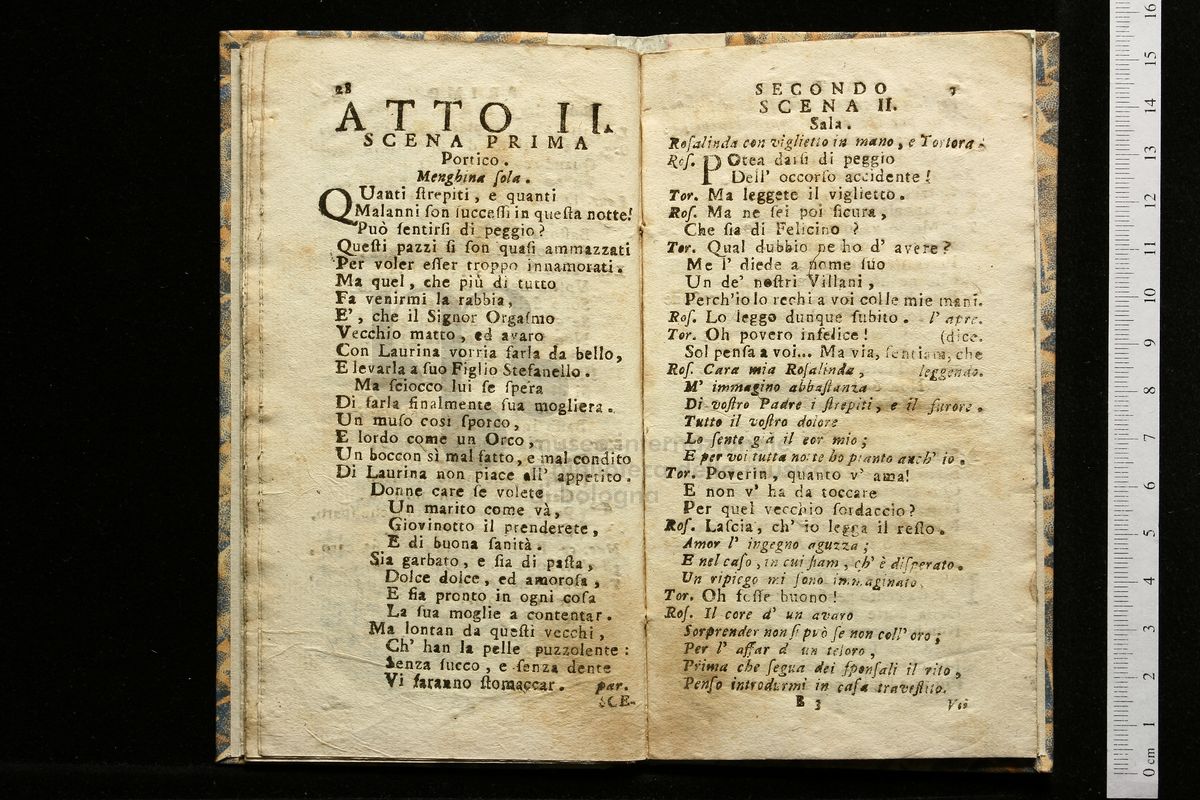 28
ATTO II.
SCENA PRIMA
Portico.
Menghina ſola.
QUanti ſtrepiti, e quanti
Malanni ſon ſucceſſi in queſta notte!
Può ſentirſi di peggio?
Queſti pazzi ſi ſon quaſi ammazzati
Per voler eſſer troppo innamorati.
Ma quel, che più di tutto
Fa venirmi la rabbia,
E', che il Signor Orgaſmo
Vecchio matto, ed avaro
Con Laurina vorria farla da bello,
E levarla a ſuo Figlio Stefanello.
Ma ſciocco lui ſe ſpera
Di farla finalmente ſua mogliera.
Un muſo così ſporco,
E lordo come un Orco,
Un boccon sì mal fatto, e mal condito
Di Laurina non piace all' appetito.
Donne care ſe volete
Un marito come và,
Giovinotto il prenderete,
E di buona ſanità.
Sia garbato, e ſia di paſta,
Dolce dolce, ed amoroſa,
E ſia pronto in ogni coſa
La ſua moglie a contentar.
Ma lontan da queſti vecchi,
Ch' han la pelle puzzolente:
Senza ſucco, e ſenza dente
Vi faranno ſtomaccar. par.
SCE-
SECONDO
SCENA II.
Sala.
Roſalinda con viglietto in mano, e Tortora.
Roſ. POtea darſi di peggio
Dell' occorſo accidente!
Tor. Ma leggete il viglietto.
Roſ. Ma ne ſei poi ſicura,
Che ſia di Felicino?
Tor. Qual dubbio ne ho d' avere?
Me l' diede a nome ſuo
Un de' noſtri Villani,
Perch'io lo rechi a voi colle mie mani.
Roſ. Lo leggo dunque ſubito. l' apre.
Tor. Oh povero infelice! (dice.
Sol penſa a voi... Ma via, ſentiam, che
Roſ. Cara mia Roſalinda, leggendo.
M' immagino abbaſtanza
Di voſtro Padre i ſtrepiti, e il furore.
Tutto il voſtro dolore
Lo ſente già il cor mio;
E per voi tutta notte ho pianto anch' io.
Tor. Poverin, quanto v' ama!
E non v' ha da toccare
Per quel vecchio ſordaccio?
Roſ. Laſcia, ch' io legga il reſto.
Amor l' ingegno aguzza;
E nel caſo, in cui ſiam, ch' è diſperato.
Un ripiego mi ſono immaginato.
Tor. Oh foſſe buono!
Roſ. Il core d' un avaro
Sorprender non ſi può ſe non coll' oro;
Per l' affar d un teſoro,
Prima che ſegua dei ſponſali il rito,
Penſo introdurmi in caſa traveſtito.
B 3
museo internazionale
e biblioteca della musica
di bologna
16
15
14
13
12
11
10
9
8
7
6
5
4
3
2
1
0 cm